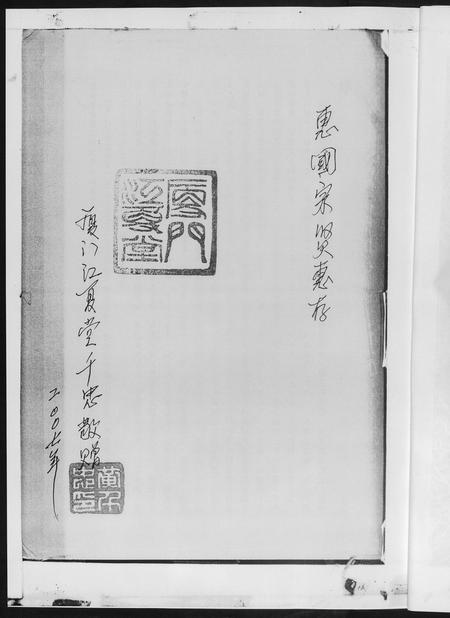 惠國宗賢惠存
廈門江夏堂
厦门江夏堂千忠敬赠
二00七年
黄千忠印